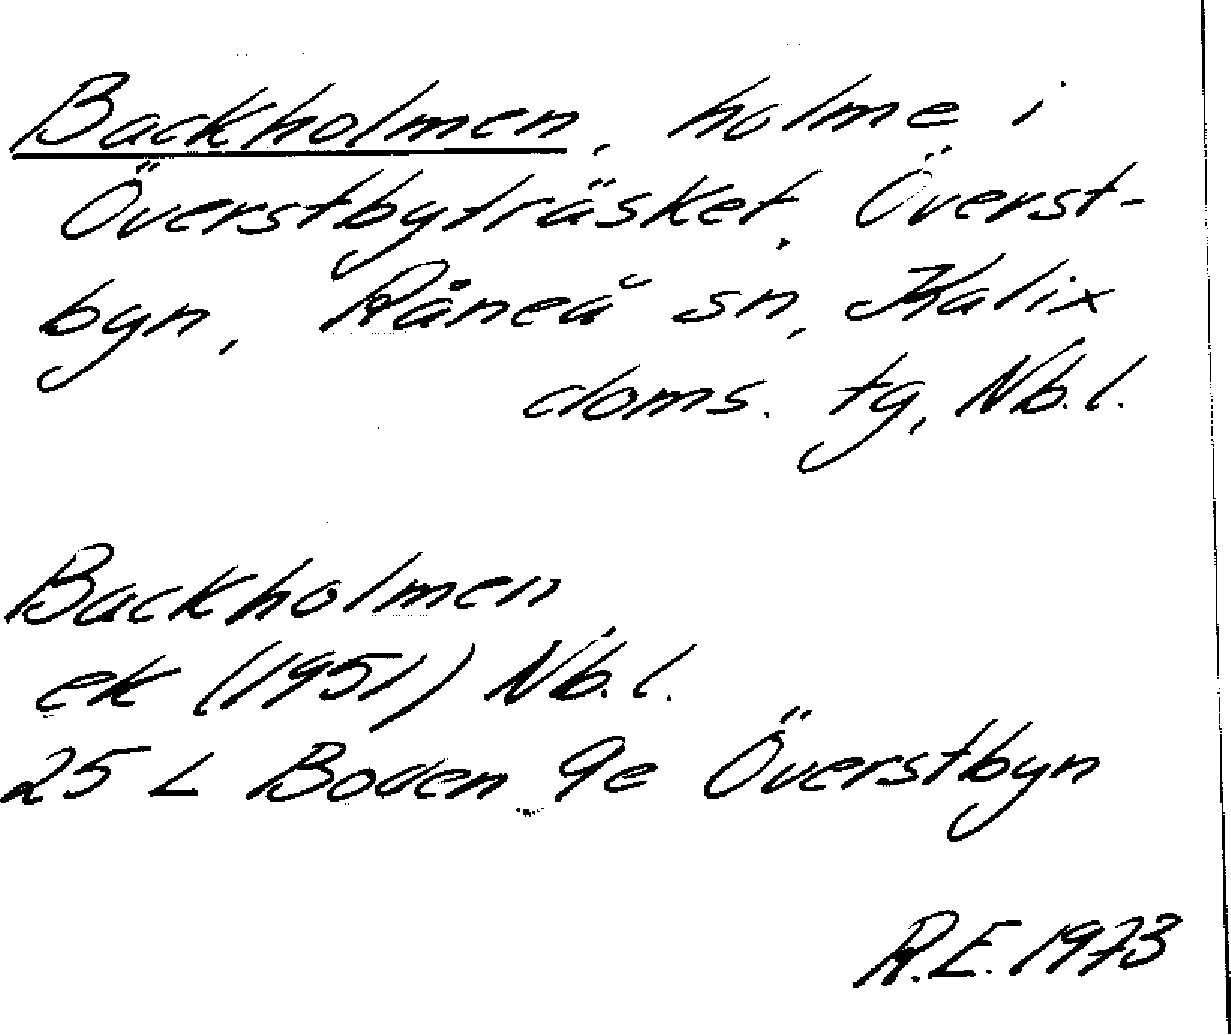 Backholmen, holme i
Överstbyträsket, Överst-
byn, Råneå sn, Kalix
doms. tg, Nb.l.
Backholmen
ek (1951) Nb.l.
25 L Boden 9e Överstbyn
R.E. 1973